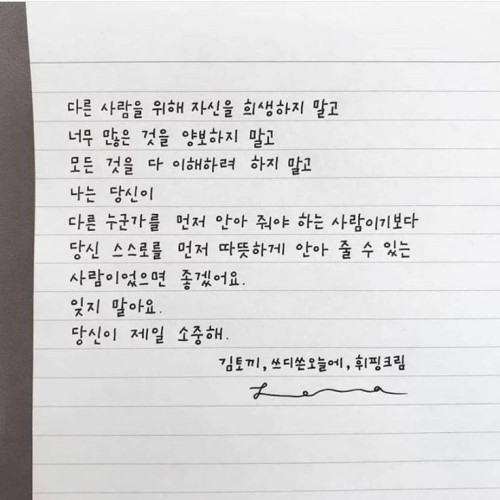 다른 사람을 위해 자신을 희생하지 말고
너무 많은 것을 양보하지 말고
모든 것을 다 이해하려 하지 말고
나는 당신이
다른 누군가를 먼저 안아 줘야 하는 사람이기보다
당신 스스로를 먼저 따뜻하게 안아 줄 수 있는
사람이었으면 좋겠어요.
잊지 말아요.
당신이 제일 소중해.
김토끼, 쓰디쓴오늘에, 휘핑크림
Lena